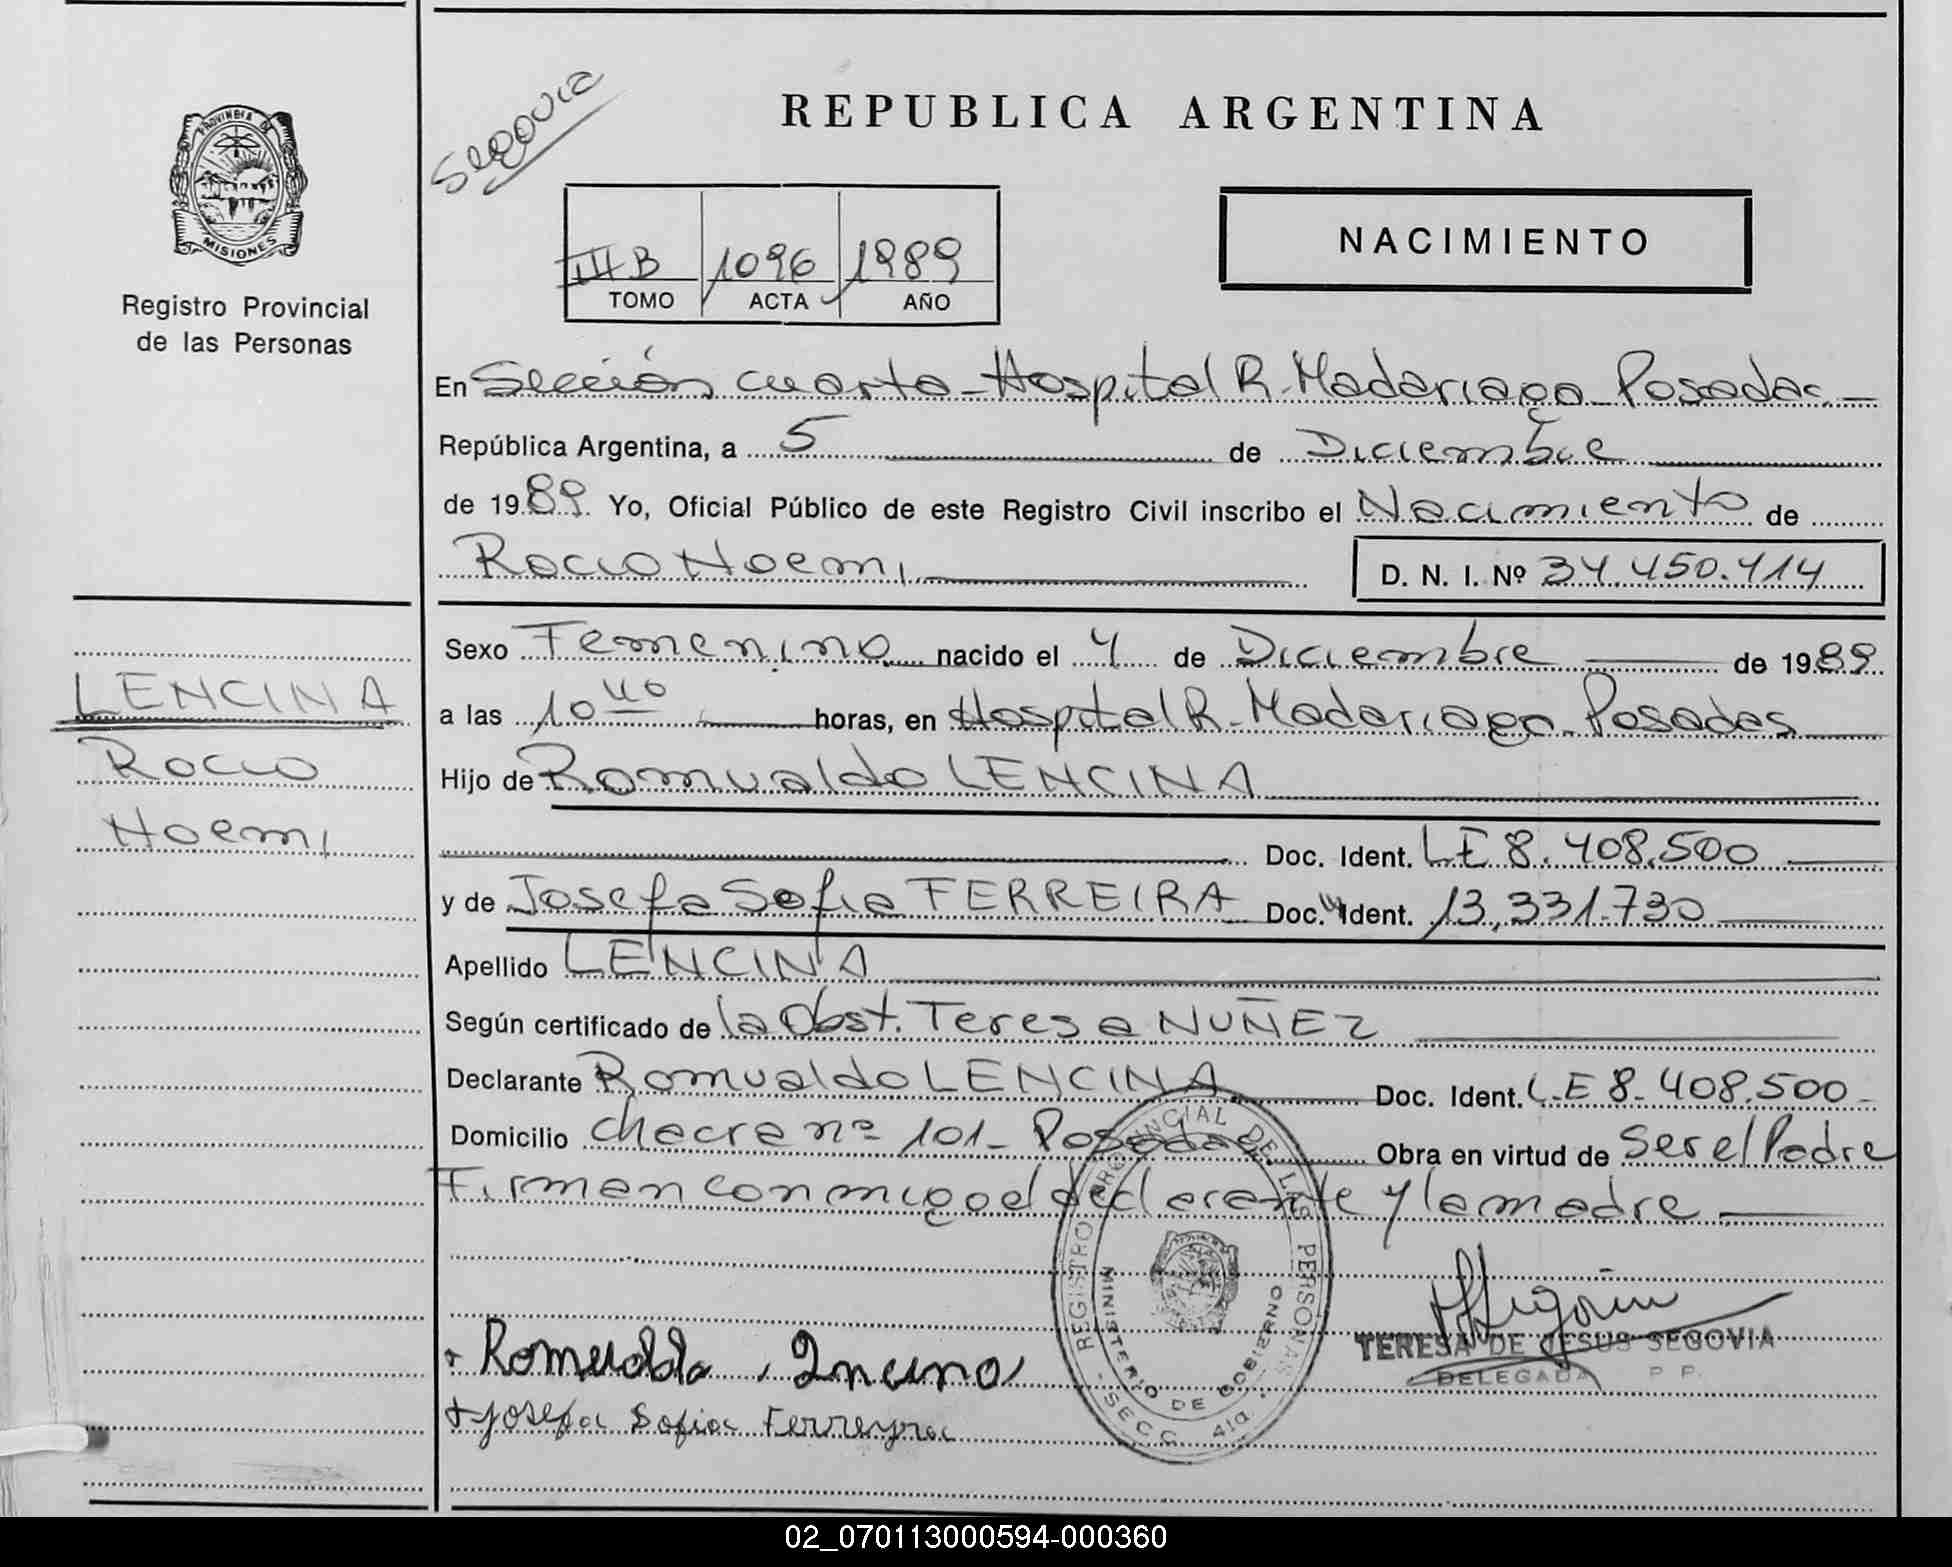 PROVINCIA DE
MISIONES
Registro Provincial
de las Personas
LENCINA
Rocio
Noemi
Segovia
REPUBLICA ARGENTINA
III B 1096 1989
TOMO ACTA AÑO
NACIMIENTO
En Sección cuarta - Hospital R. Madariaga - Posadas -
República Argentina, a 5 de Diciembre
de 1989. Yo, Oficial Público de este Registro Civil inscribo el Nacimiento de
Rocio Noemi D. N. I. Nº 34.450.414
Sexo Femenino nacido el 4 de Diciembre de 1989
a las 10 40 horas, en Hospital R. Madariaga - Posadas
Hijo de Romualdo LENCINA
Doc. Ident. LE 8.408.500
y de Josefa Sofia FERREIRA Doc. Ident. 13.331.730
Apellido LENCINA
Según certificado de la Obst. Teresa NUÑEZ
Declarante Romualdo LENCINA Doc. Ident. L.E 8.408.500
Domicilio Chacra nº 101 - Posadas Obra en virtud de ser el Padre
Firman conmigo el declarante y la madre
REGISTRO PROVINCIAL DE LAS PERSONAS
MINISTERIO DE GOBIERNO
- SECC. 4ta. -
TERESA DE JESUS SEGOVIA
DELEGADA P.P.
+ Romualdo
+ Josefa Sofia Ferreyra
02_070113000594-000360